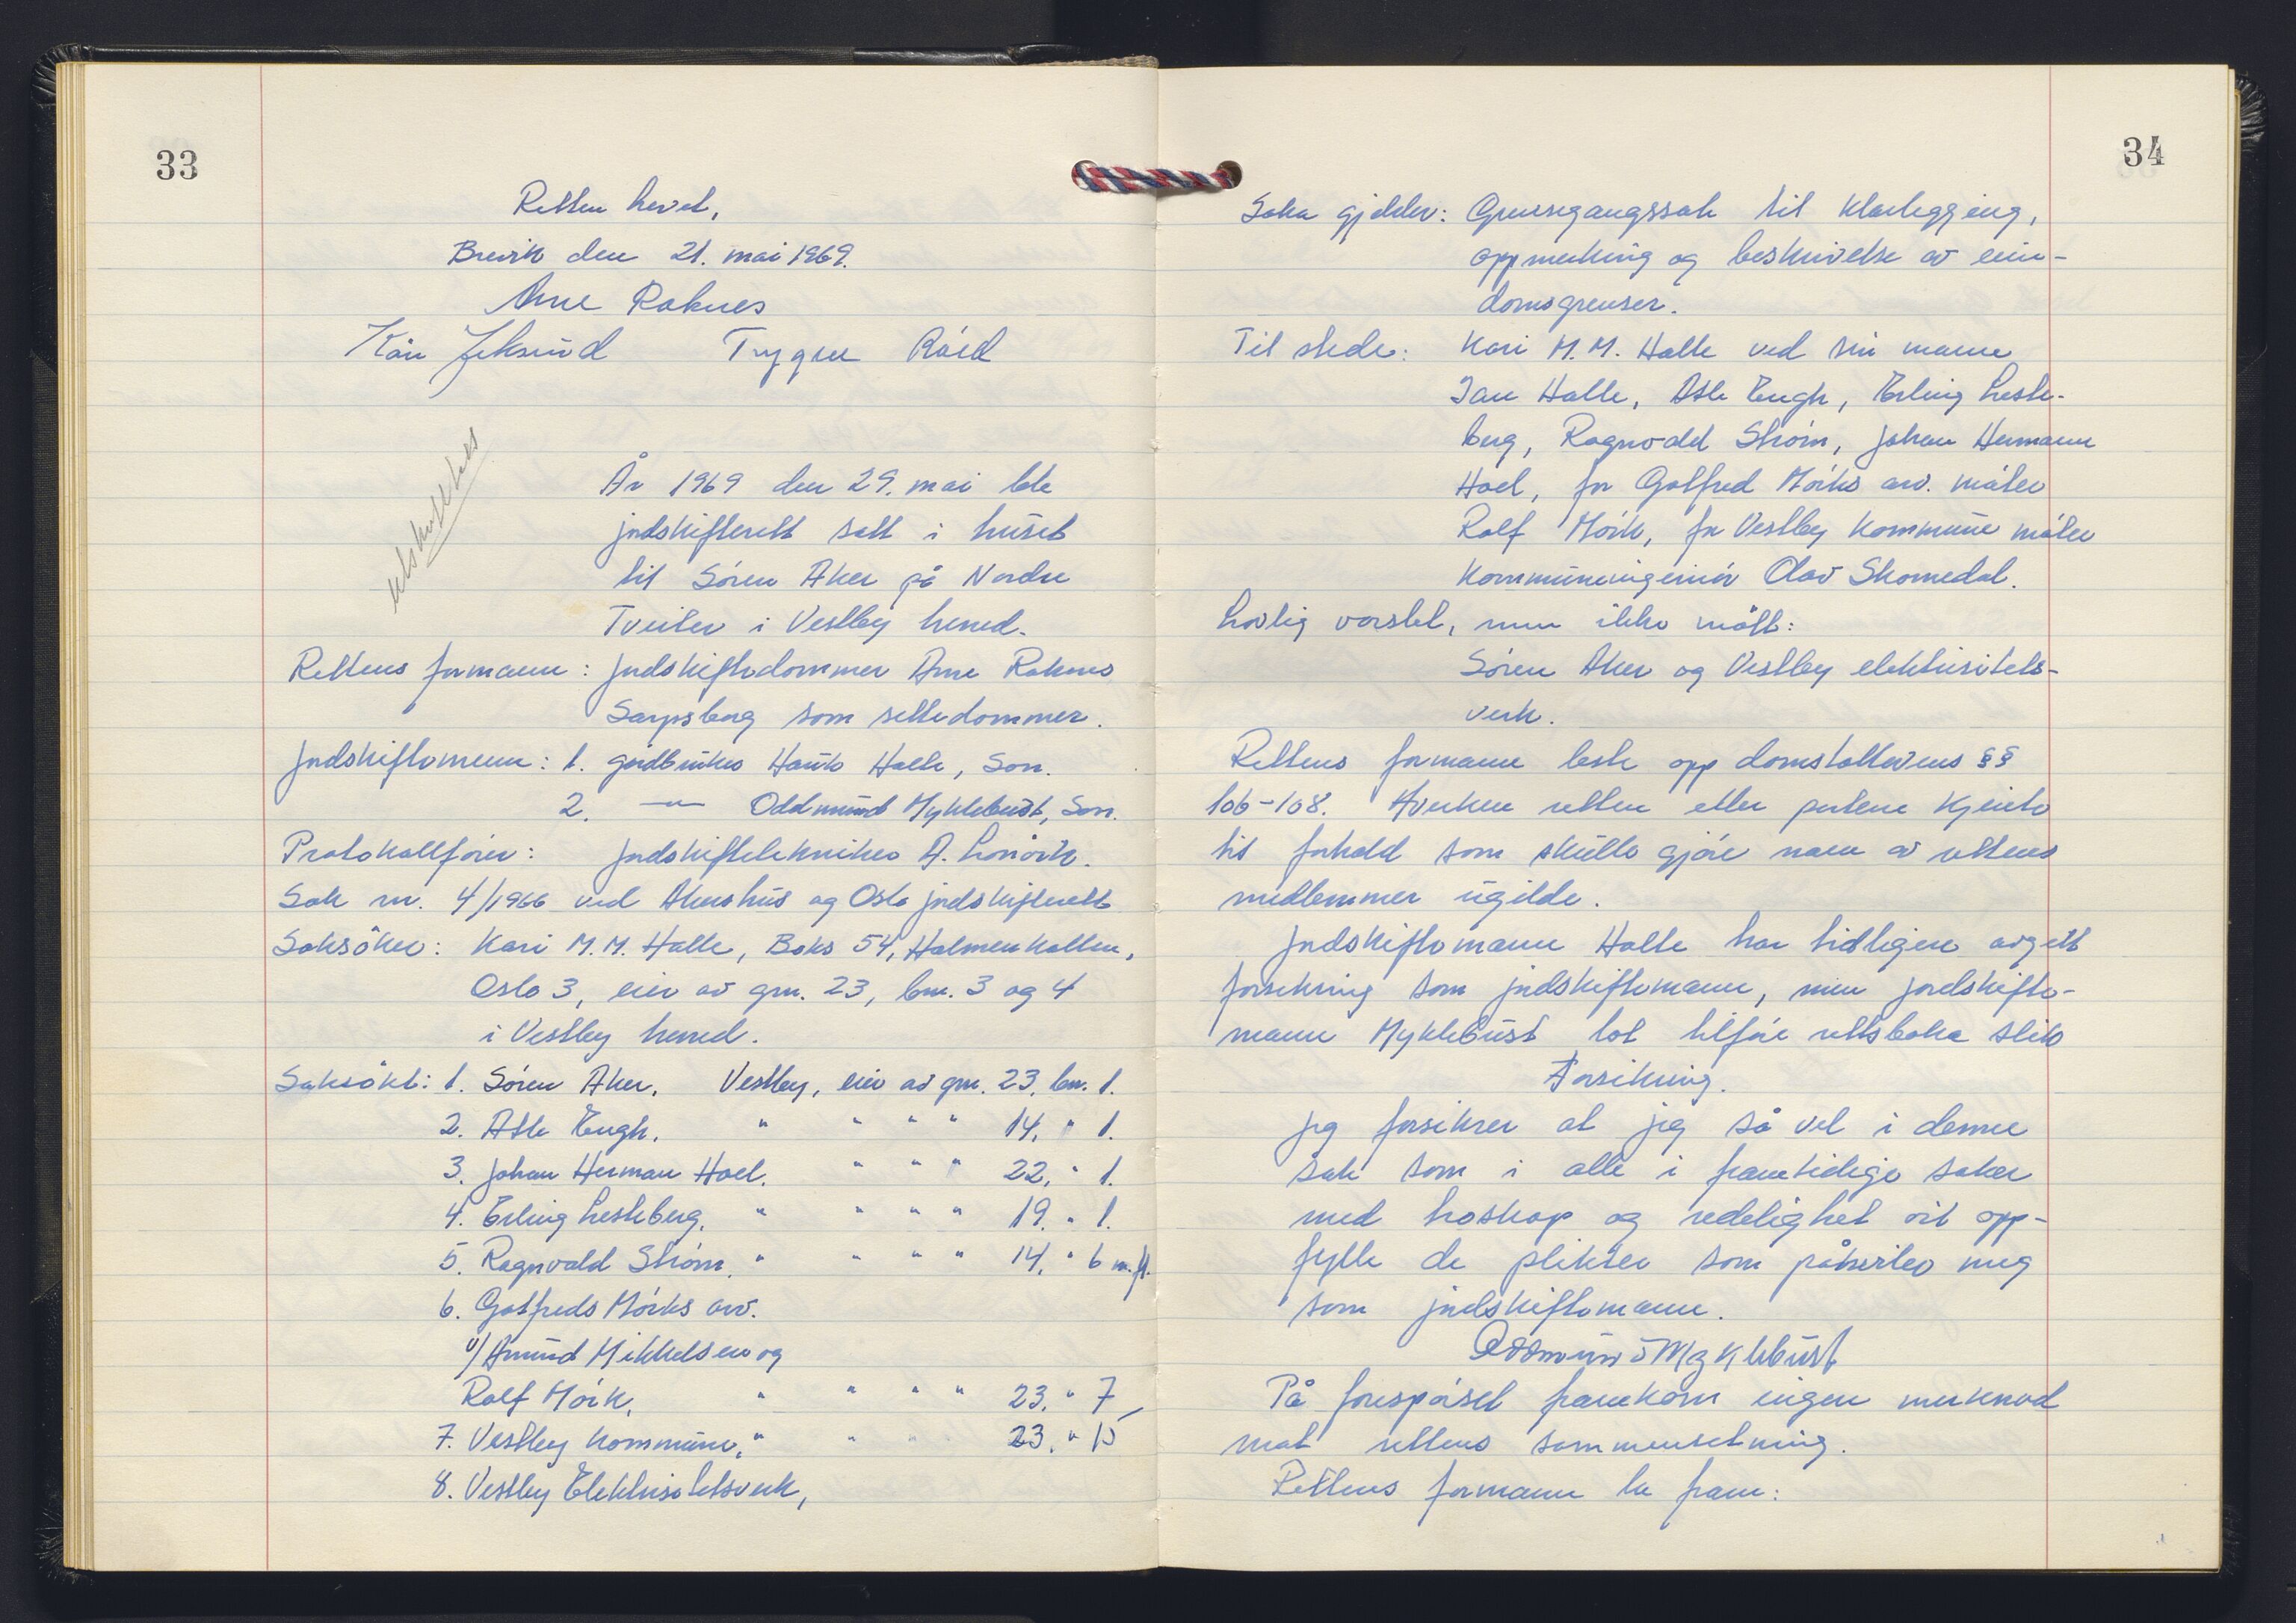 33
Retten hevet,
Brevik den 21. mai 1969.
Arne Raknes
Trygve
utskrift
År 1969 den 29. mai ble
jordskifterett satt i huset
til Søren Aker på Nordre
Tveiter i Vestby herred.
Rettens formann: Jordskiftedommer Arne Raknes
Sarpsborg som settedommer.
Jordskiftemenn: 1. gårdbruker Hauk Halle, Son.
2. —"— Oddmund Myklebust, Son.
Protokollfører: Jordskiftetekniker A.
Sak nr. 4/1966 ved Akershus og Oslo jordskifterett
Saksøker: Kari M.M. Halle, Boks 54, Holmenkollen,
Oslo 3, eier av gnr. 23, bnr. 3 og 4
i Vestby herred.
Saksøkt: 1. Søren Aker, Vestby, eier av gnr. 23, bnr. 1.
2. Atle Engh. " " " " 14, " 1.
3. Johan Herman Hoel. " " " 22, " 1.
4. Erling Lesteberg. " " " " 19. " 1.
5. Ragnvald Strøm. " " " " 14, " 6 m.fl.
6. Gotfreds Mørks arv.
v/Amund Mikkelsen og
Rolf Mørk, " " " " 23. " 7
7. Vestby kommune, " " " 23. " 15
8. Vestby Elektrisitetsverk,
34
Saka gjelder: Grensegangssak til klarlegging,
oppmerking og beskrivelse av eien-
domsgrenser.
Til stede: Kari M.M. Halle ved sin mann
Jan Halle, Atle Engh, Erling Leste-
berg, Ragnvald Strøm, Johan Hermann
Hoel, for Gotfred Mørks arv. møter
Rolf Mørk, for Vestby kommune møter
kommuneingeniør Olav Skomedal.
Lovlig varslet, men ikke møtt:
Søren Aker og Vestby elektrisitets-
verk.
Rettens formann leste opp domstollovens §§
106-108. Hverken retten eller partene kjente
til forhold som skulle gjøre noen av rettens
medlemmer ugilde.
Jordskiftemann Halle har tidligere avgitt
forsikring som jordskiftemann, men jordskifte-
mann Myklebust lot tilføre rettsboka slik
Forsikring.
Jeg forsikrer at jeg så vel i denne
sak som i alle i framtidige saker
med troskap og redelighet vil opp-
fylle de plikter som påhviler meg
som jordskiftemann.
Oddmund Myklebust
På forespørsel framkom ingen merknad
mot rettens sammensetning.
Rettens formann la fram: